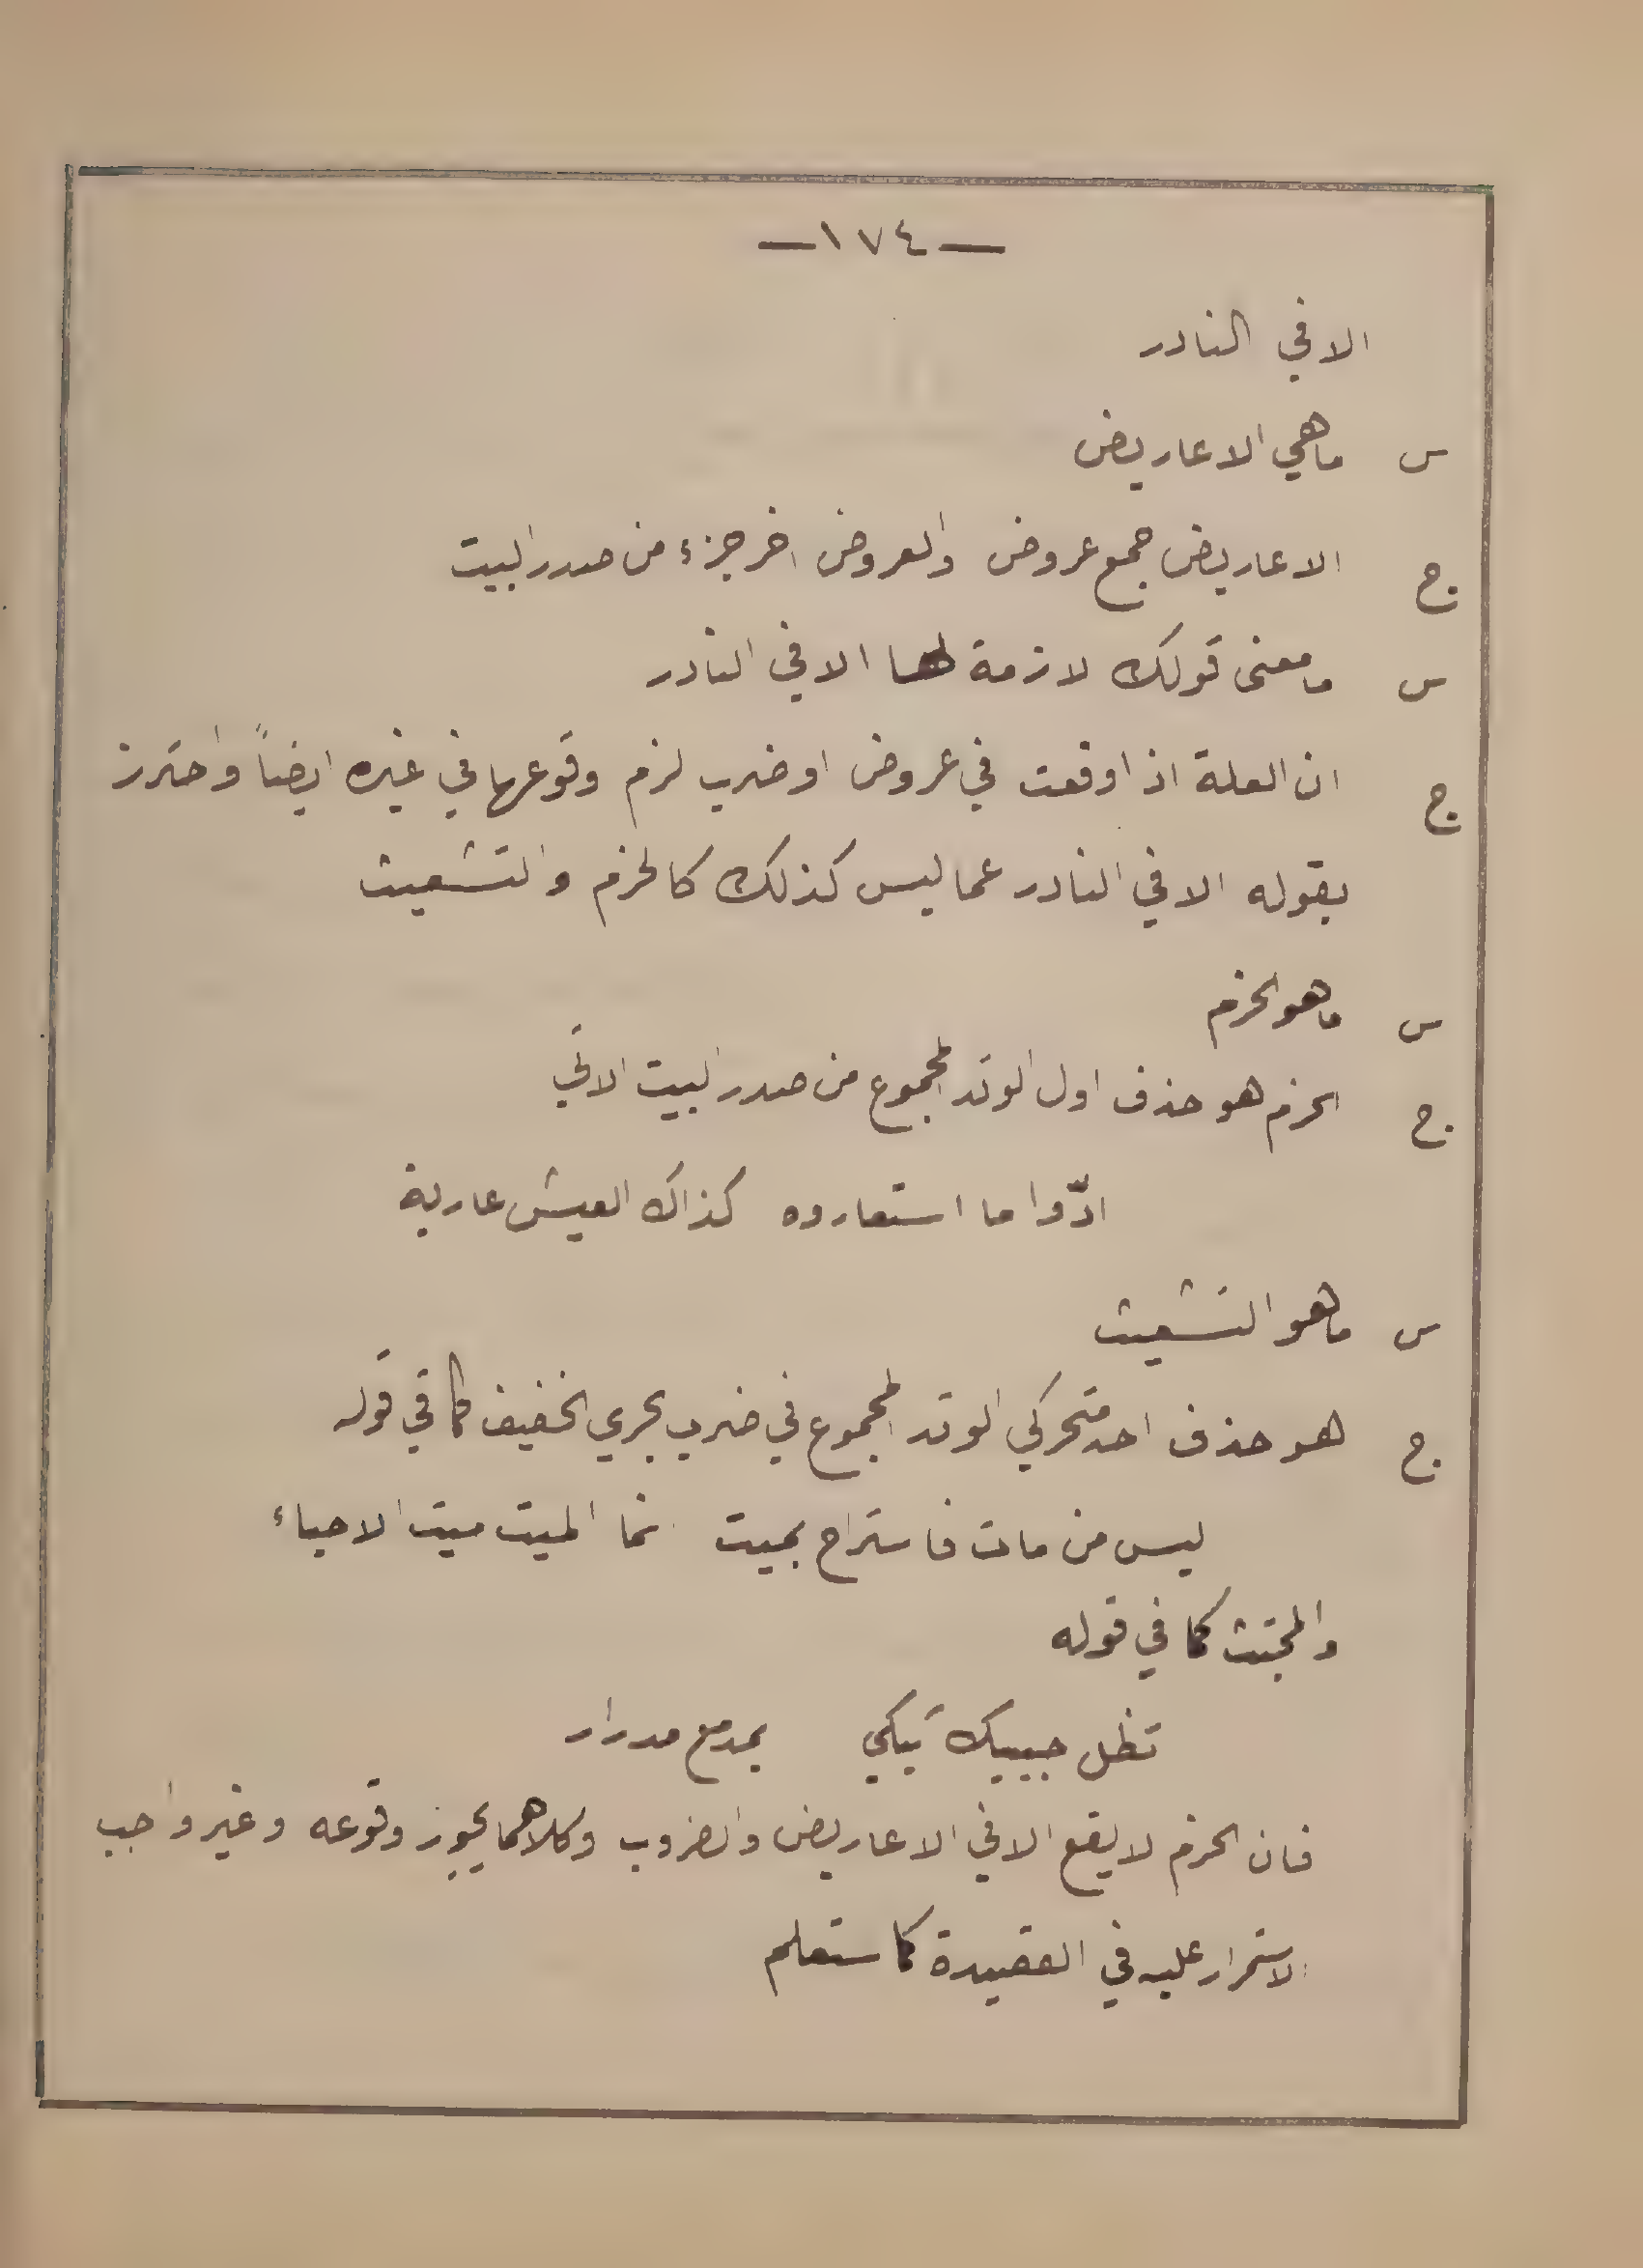 — ١٧٤ —
الا في النادر
س ما هي الاعاريض
ج الاعاريض جمع عروض والعروض اخر جزء من صدر البيت
س ما معنى قولك لازمة لها الا في النادر
ج ان العلة اذا وقعت في عروض او ضرب لزم وقوعها في غيره ايضاً واحترز
بقوله الا في النادر عما ليس كذلك كالخرم والتشعيث
س ما هو الخرم
ج الخرم هو حذف اول الوتد المجموع من صدر البيت الاتي
ادّوا ما استعاروه كذاك العيش عارية
س ما هو التشعيث
ج هو حذف احد متحركي الوتد المجموع في ضرب بحري الخفيف كما في قوله
ليس من مات فاستراح بميت نما الميت ميت الاحياء
والمجتث كما في قوله
تظل حبيبك تبكي بمدمع مدرار
فان الخرم لا يقع الا في الاعاريض والضروب وكلاهما يجوز وقوعه وغير واجب
الاستمرار عليه في القصيدة كما ستعلم